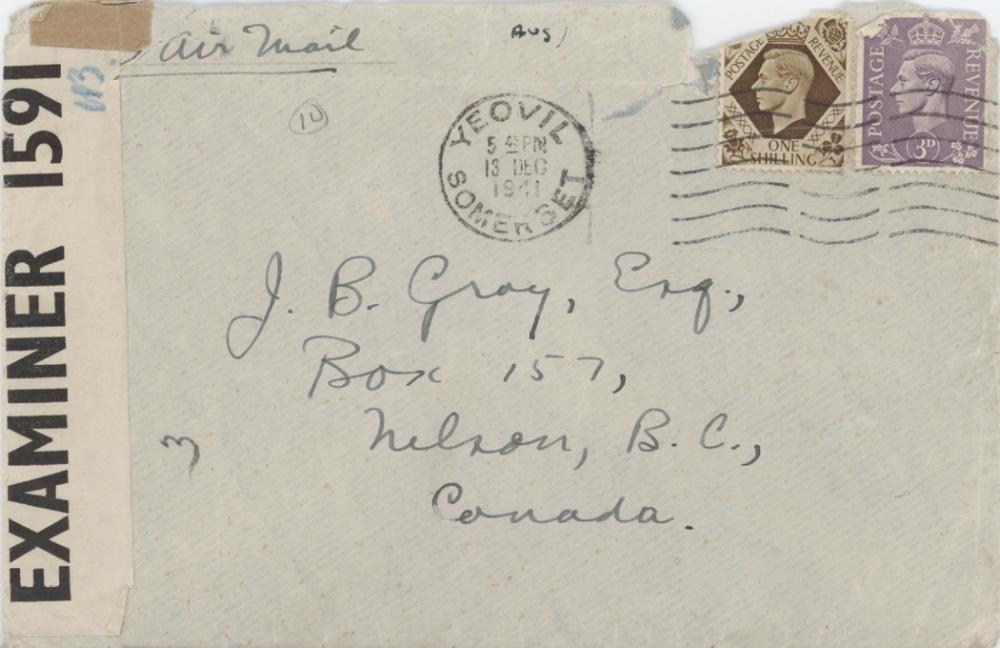 Air Mail
AUS
10
EXAMINER 1591
YEOVIL
5 45 PM
13 DEC
1941
SOMERSET
POSTAGE REVENUE
ONE SHILLING
POSTAGE REVENUE
3D
J. B. Gray, Esq.,
Box 157,
Nelson, B.C.,
Canada.